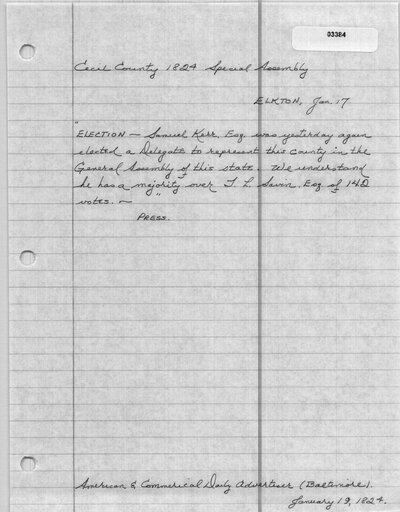 03384
Cecil County 1824 Special Assembly
ELKTON, Jan. 17
"ELECTION — Samuel Kerr, Esq. was yesterday again
elected a Delegate to represent this county in the
General Assembly of this state. We understand
he has a majority over T. L. Savin, Esq of 142
votes. — "
PRESS.
American & Commerical Daily Advertiser (Baltimore).
January 19, 1824.